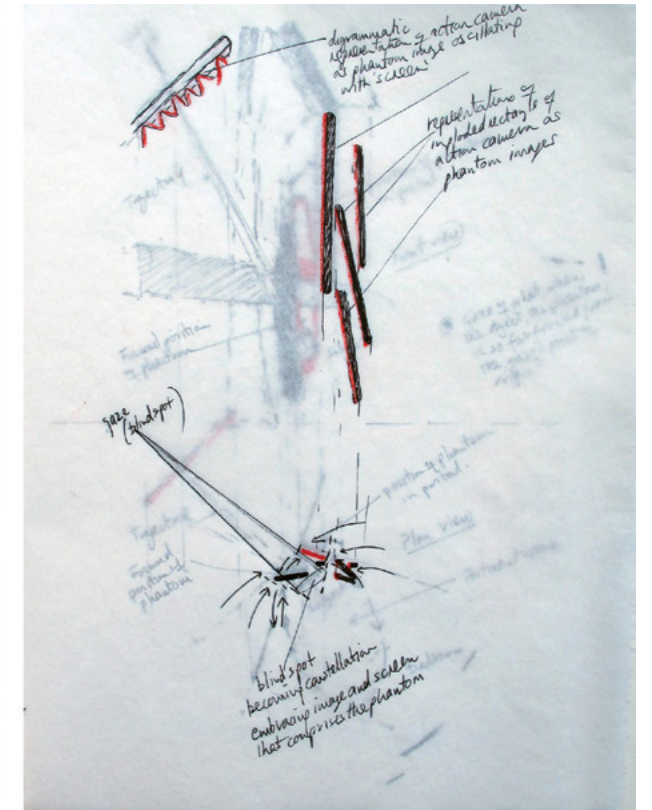 digrammatic
representation of action camera
as phantom image oscillating
with 'screen'
representations of
imploded rectangle of
action camera as
phantom images
Trajectory
Front view
Forward position
of phantom
gaze
(blindspot)
position of phantom
in portal.
Trajectory
Plan view
Forward
position of
phantom
blindspot
becoming constellation
embracing image and screen
that comprises the phantom